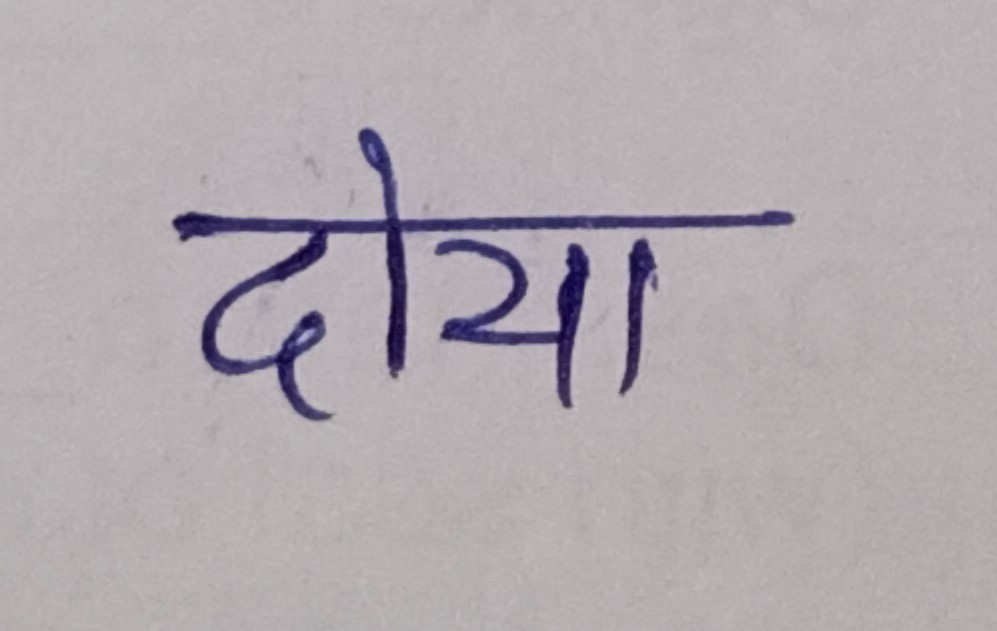 दोया